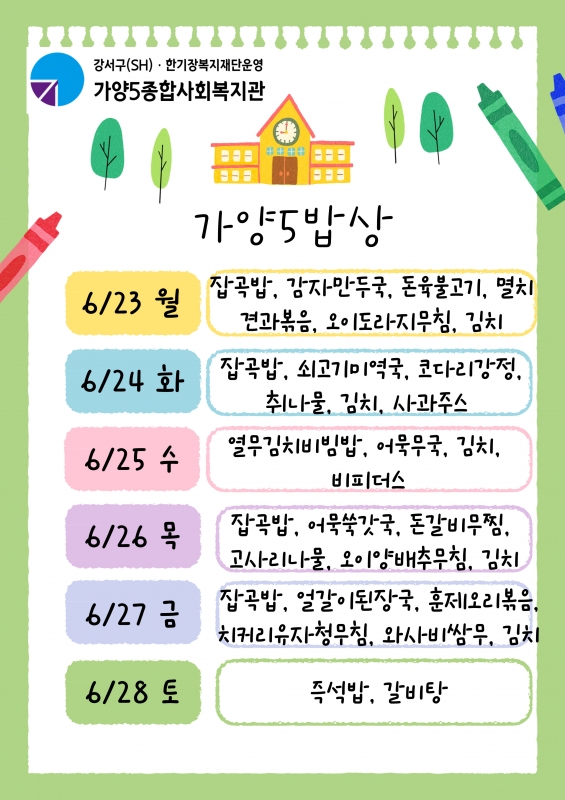 강서구(SH) · 한기장복지재단운영
가양5종합사회복지관
가양5밥상
6/23 월
잡곡밥, 감자만두국, 돈육불고기, 멸치
견과볶음, 오이도라지무침, 김치
6/24 화
잡곡밥, 쇠고기미역국, 코다리강정,
취나물, 김치, 사과주스
6/25 수
열무김치비빔밥, 어묵무국, 김치,
비피더스
6/26 목
잡곡밥, 어묵쑥갓국, 돈갈비무찜,
고사리나물, 오이양배추무침, 김치
6/27 금
잡곡밥, 얼갈이된장국, 훈제오리볶음,
치커리유자청무침, 와사비쌈무, 김치
6/28 토
즉석밥, 갈비탕